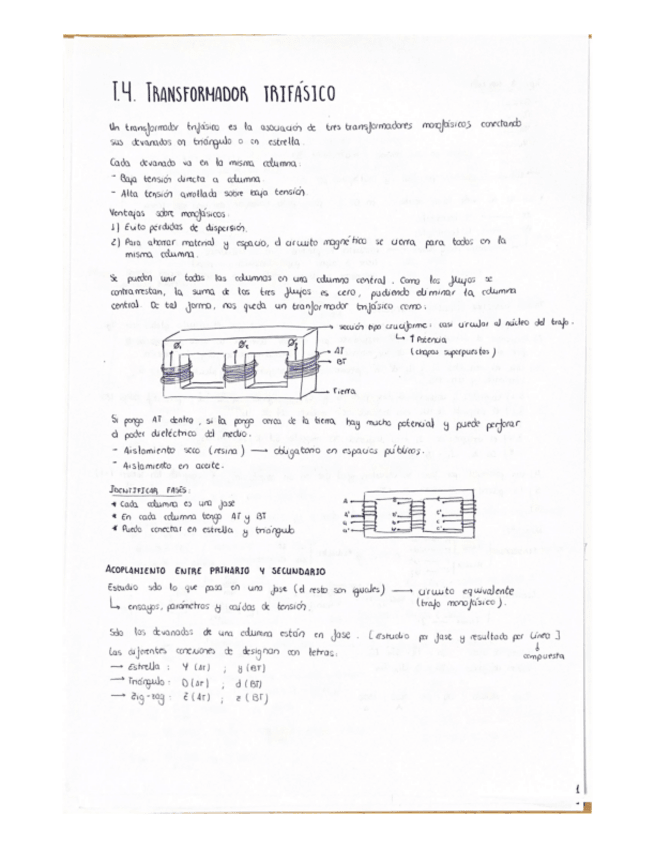 T.4. TRANSFORMADOR TRIFÁSICO
Un transformador trifásico es la asociación de tres transformadores monofásicos, conectando
sus devanados en triángulo o en estrella.
Cada devanado va en la misma columna:
- Baja tensión directa a columna
- Alta tensión arrollada sobre baja tensión
Ventajas sobre monofásicos:
1) Evito pérdidas de dispersión.
2) Para ahorrar material y espacio, el circuito magnético se cierra para todos en la
misma columna.
Se pueden unir todas las columnas en una columna central. Como los flujos se
contrarrestan, la suma de los tres flujos es cero, pudiendo eliminar la columna
central. De tal forma, nos queda un tranformador trifásico como:
sección tipo cruciforme: casi circular al núcleo del trafo.
↳ ↑ Potencia
(chapas superpuestas)
Ø1 Ø2 Ø3
AT
BT
Tierra
Si pongo AT dentro, si la pongo cerca de la tierra, hay mucho potencial y puede perforar
el poder dieléctrico del medio.
- Aislamiento seco (resina) → obligatorio en espacios públicos.
- Aislamiento en aceite.
IDENTIFICAR FASES:
Cada columna es una fase
En cada columna tengo AT y BT
Puedo conectar en estrella y triángulo
A B C
A' B' C'
a b c
a' b' c'
ACOPLAMIENTO ENTRE PRIMARIO Y SECUNDARIO
Estudio solo lo que pasa en una fase (el resto son iguales) → circuito equivalente
(trafo monofásico).
↳ ensayos, parámetros y caídas de tensión.
Solo los devanados de una columna están en fase. [estudio por fase y resultado por Línea]
↓
compuesta
Las diferentes conexiones de designan con letras:
→ Estrella: Y (AT) ; y (BT)
→ Triángulo: D (AT) ; d (BT)
→ Zig-zag: Z (AT) ; z (BT)
1